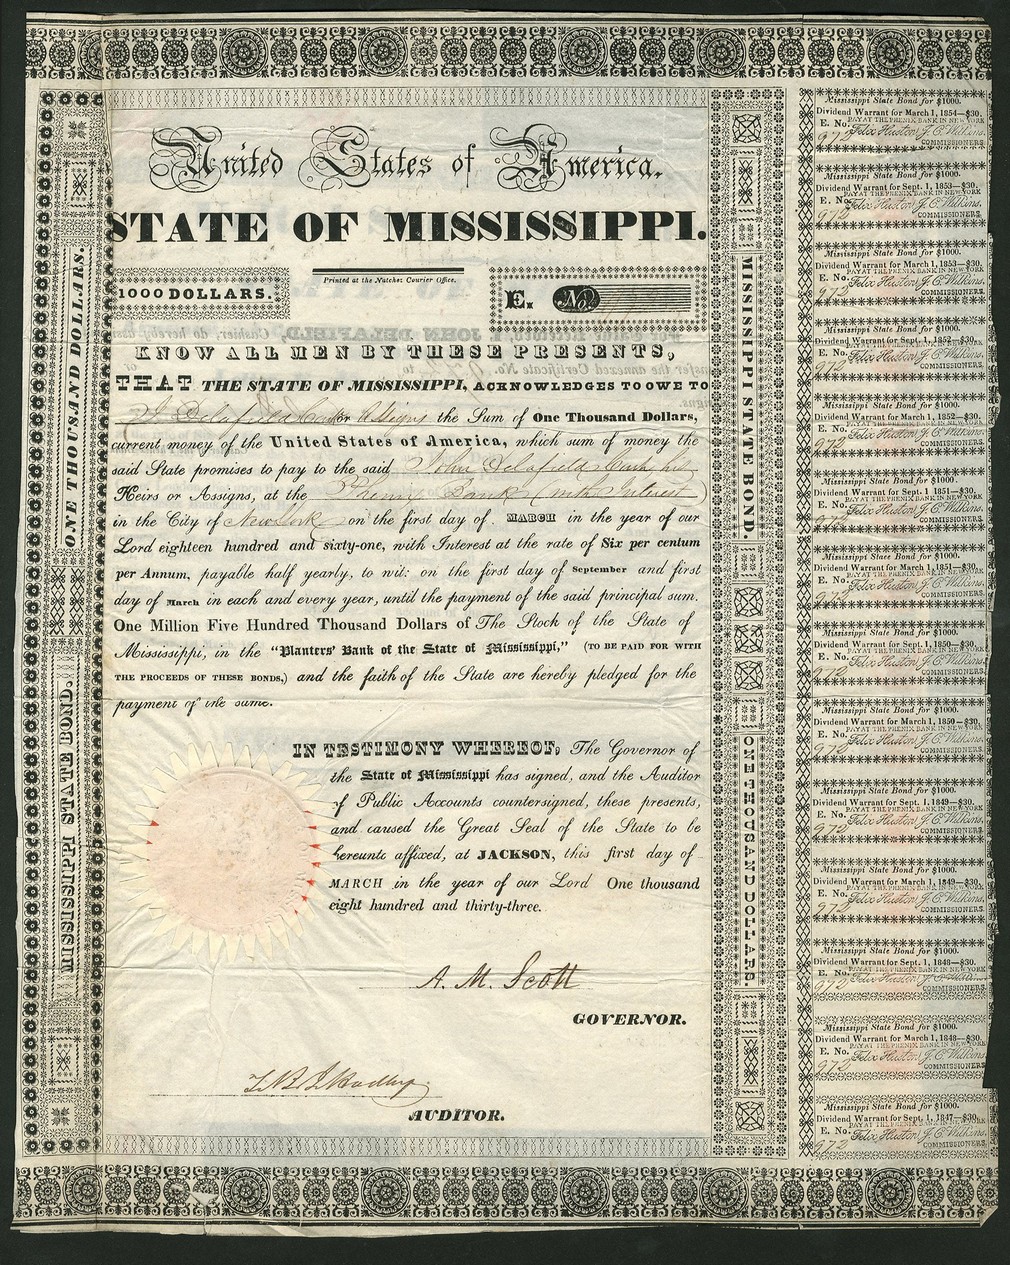 United States of America.
STATE OF MISSISSIPPI.
Printed at the Natchez Courier Office.
1000 DOLLARS.
E. No
KNOW ALL MEN BY THESE PRESENTS,
THAT THE STATE OF MISSISSIPPI, ACKNOWLEDGES TO OWE TO
J. Delafield Cash or Assigns the Sum of One Thousand Dollars,
current money of the United States of America, which sum of money the
said State promises to pay to the said John Delafield Cash, his
Heirs or Assigns, at the Phenix Bank (with Interest)
in the City of New York on the first day of MARCH in the year of our
Lord eighteen hundred and sixty-one, with Interest at the rate of Six per centum
per Annum, payable half yearly, to wit: on the first day of September and first
day of March in each and every year, until the payment of the said principal sum.
One Million Five Hundred Thousand Dollars of The Stock of the State of
Mississippi, in the "Planters' Bank of the State of Mississippi," (TO BE PAID FOR WITH
THE PROCEEDS OF THESE BONDS,) and the faith of the State are hereby pledged for the
payment of the same.
IN TESTIMONY WHEREOF, The Governor of
the State of Mississippi has signed, and the Auditor
of Public Accounts countersigned, these presents,
and caused the Great Seal of the State to be
hereunto affixed, at JACKSON, this first day of
MARCH in the year of our Lord One thousand
eight hundred and thirty-three.
A. M. Scott
GOVERNOR.
AUDITOR.
ONE THOUSAND DOLLARS.
MISSISSIPPI STATE BOND.
MISSISSIPPI STATE BOND.
ONE THOUSAND DOLLARS.
Mississippi State Bond for $1000.
Dividend Warrant for March 1, 1854—$30.
PAY AT THE PHENIX BANK IN NEW YORK
E. No. 972 Felix Huston J. C. Wilkins,
COMMISSIONERS.
Mississippi State Bond for $1000.
Dividend Warrant for Sept. 1, 1853—$30.
PAY AT THE PHENIX BANK IN NEW YORK
E. No. 972 Felix Huston J. C. Wilkins,
COMMISSIONERS.
Mississippi State Bond for $1000.
Dividend Warrant for March 1, 1853—$30.
PAY AT THE PHENIX BANK IN NEW YORK
E. No. 972 Felix Huston J. C. Wilkins,
COMMISSIONERS.
Mississippi State Bond for $1000.
Dividend Warrant for Sept. 1, 1852—$30.
PAY AT THE PHENIX BANK IN NEW YORK
E. No. 972 Felix Huston J. C. Wilkins,
COMMISSIONERS.
Mississippi State Bond for $1000.
Dividend Warrant for March 1, 1852—$30.
PAY AT THE PHENIX BANK IN NEW YORK
E. No. 972 Felix Huston J. C. Wilkins,
COMMISSIONERS.
Mississippi State Bond for $1000.
Dividend Warrant for Sept. 1, 1851—$30.
PAY AT THE PHENIX BANK IN NEW YORK
E. No. 972 Felix Huston J. C. Wilkins,
COMMISSIONERS.
Mississippi State Bond for $1000.
Dividend Warrant for March 1, 1851—$30.
PAY AT THE PHENIX BANK IN NEW YORK
E. No. 972 Felix Huston J. C. Wilkins,
COMMISSIONERS.
Mississippi State Bond for $1000.
Dividend Warrant for Sept. 1, 1850—$30.
PAY AT THE PHENIX BANK IN NEW YORK
E. No. 972 Felix Huston J. C. Wilkins,
COMMISSIONERS.
Mississippi State Bond for $1000.
Dividend Warrant for March 1, 1850—$30.
PAY AT THE PHENIX BANK IN NEW YORK
E. No. 972 Felix Huston J. C. Wilkins,
COMMISSIONERS.
Mississippi State Bond for $1000.
Dividend Warrant for Sept. 1, 1849—$30.
PAY AT THE PHENIX BANK IN NEW YORK
E. No. 972 Felix Huston J. C. Wilkins,
COMMISSIONERS.
Mississippi State Bond for $1000.
Dividend Warrant for March 1, 1849—$30.
PAY AT THE PHENIX BANK IN NEW YORK
E. No. 972 Felix Huston J. C. Wilkins,
COMMISSIONERS.
Mississippi State Bond for $1000.
Dividend Warrant for Sept. 1, 1848—$30.
PAY AT THE PHENIX BANK IN NEW YORK
E. No. 972 Felix Huston J. C. Wilkins,
COMMISSIONERS.
Mississippi State Bond for $1000.
Dividend Warrant for March 1, 1848—$30.
PAY AT THE PHENIX BANK IN NEW YORK
E. No. 972 Felix Huston J. C. Wilkins,
COMMISSIONERS.
Mississippi State Bond for $1000.
Dividend Warrant for Sept. 1, 1847—$30.
PAY AT THE PHENIX BANK IN NEW YORK
E. No. 972 Felix Huston J. C. Wilkins,
COMMISSIONERS.